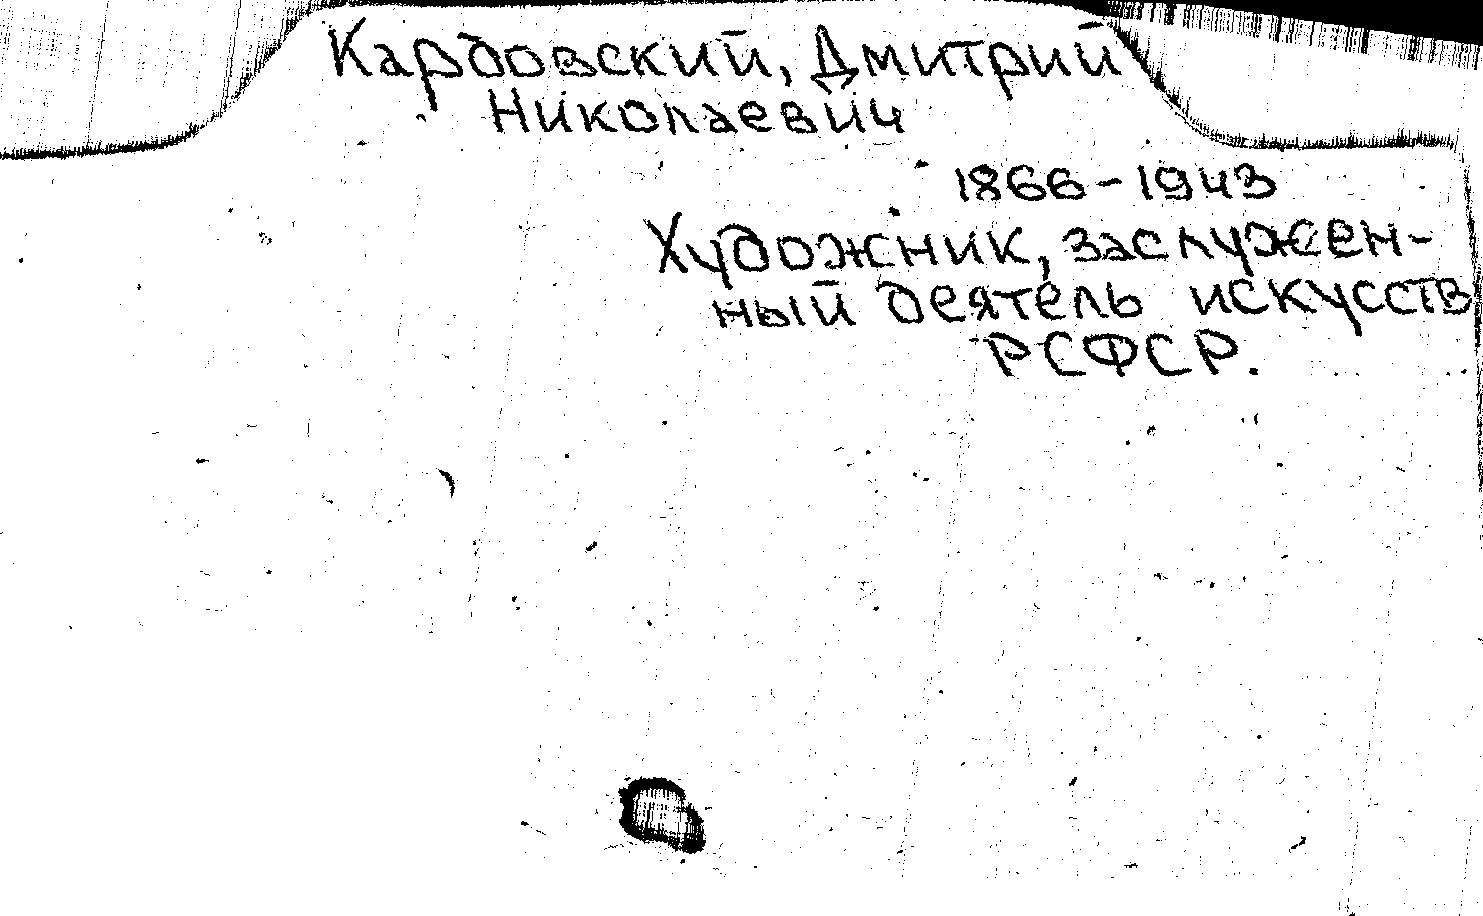 Кардовский, Дмитрий
Николаевич
1866-1943
Художник, заслужен-
ный деятель искусств
РСФСР.